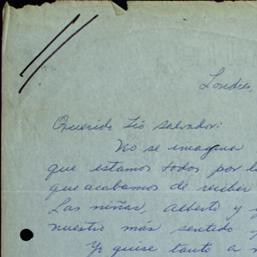 Londres,
Querido Tío Salvador:
No se imagina
que estamos todos por l
que acabamos de recibir
Las niñas, Alberto y y
nuestro más sentido p
Yo quise tanto a m